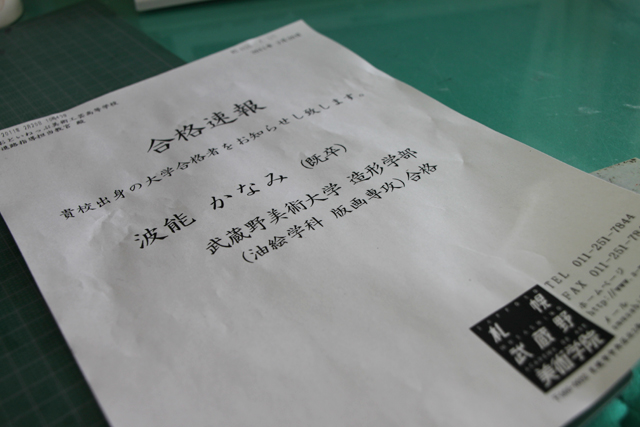 合格速報
貴校出身の大学合格者をお知らせし致します。
波能 かなみ (既卒)
武蔵野美術大学 造形学部
(油絵学科 版画専攻)合格
TEL 011-251-7844
FAX 011-251-784
ホームページ
http://www.
メール
札幌
武蔵野
美術学院